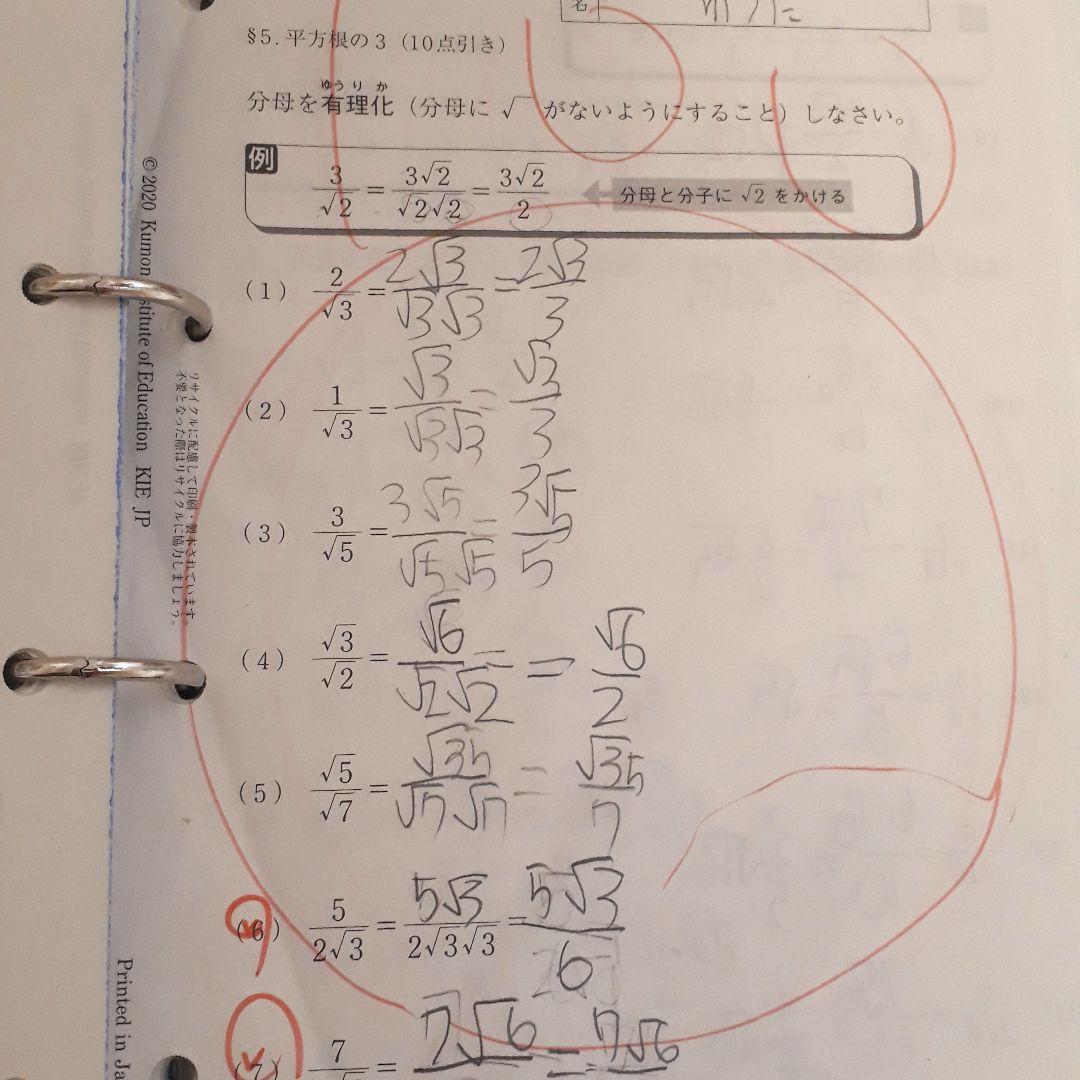 名
§5. 平方根の3 (10点引き)
ゆう り か
分母を有理化 (分母に √ がないようにすること) しなさい。
例
3/√2 = 3√2/√2√2 = 3√2/2 分母と分子に √2 をかける
(1) 2/√3 = 2√3/√3√3 = 2√3/3
(2) 1/√3 = √3/√3√3 = √3/3
(3) 3/√5 = 3√5/√5√5 = 3√5/5
(4) √3/√2 = √6/√2√2 = = √6/2
(5) √5/√7 = √35/√7√7 = √35/7
(6) 5/2√3 = 5√3/2√3√3 = 5√3/6
(7) 7 = 7√6 = 7√6
© 2020 Kumon Institute of Education KIE JP
リサイクルに配慮して印刷・製本されています。
不要となった際はリサイクルに協力しましょう。
Printed in Ja